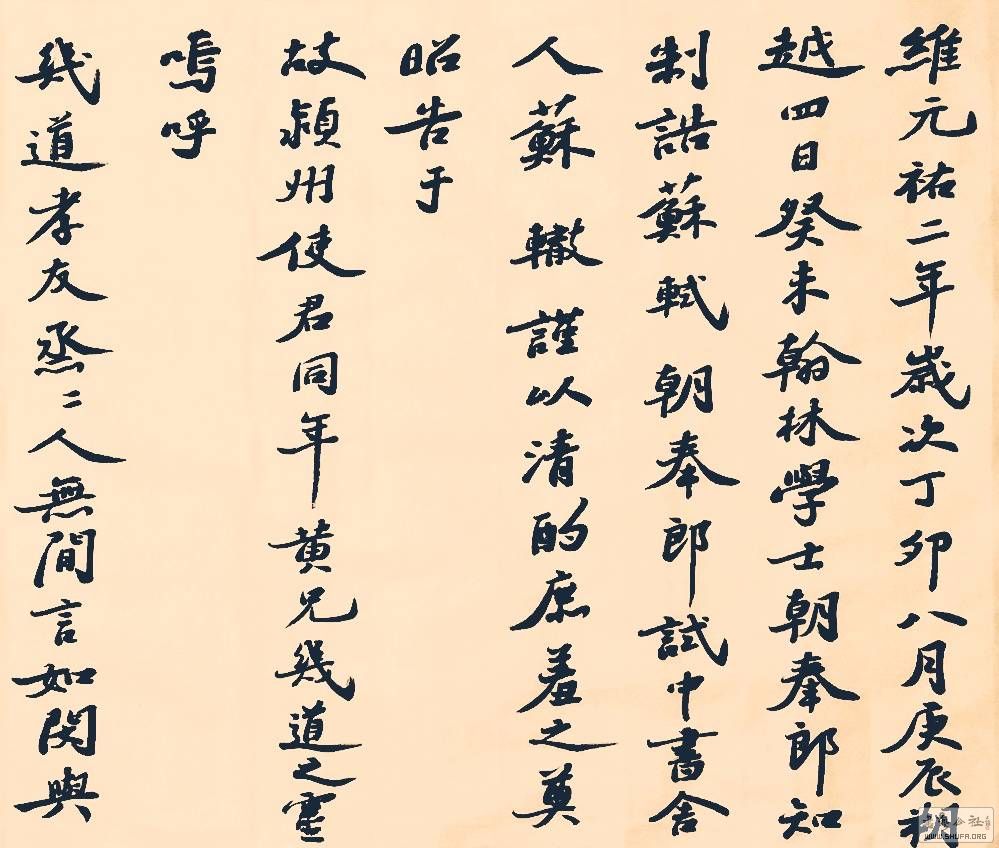 維元祐二年歲次丁卯八月庚辰朔
越四日癸未翰林學士朝奉郎知
制誥蘇軾朝奉郎試中書舍
人蘇轍謹以清酌庶羞之奠
昭告于
故潁州使君同年黃兄幾道之靈
嗚呼
幾道孝友烝〻人無間言如閔與
WWW.SHUFA.ORG